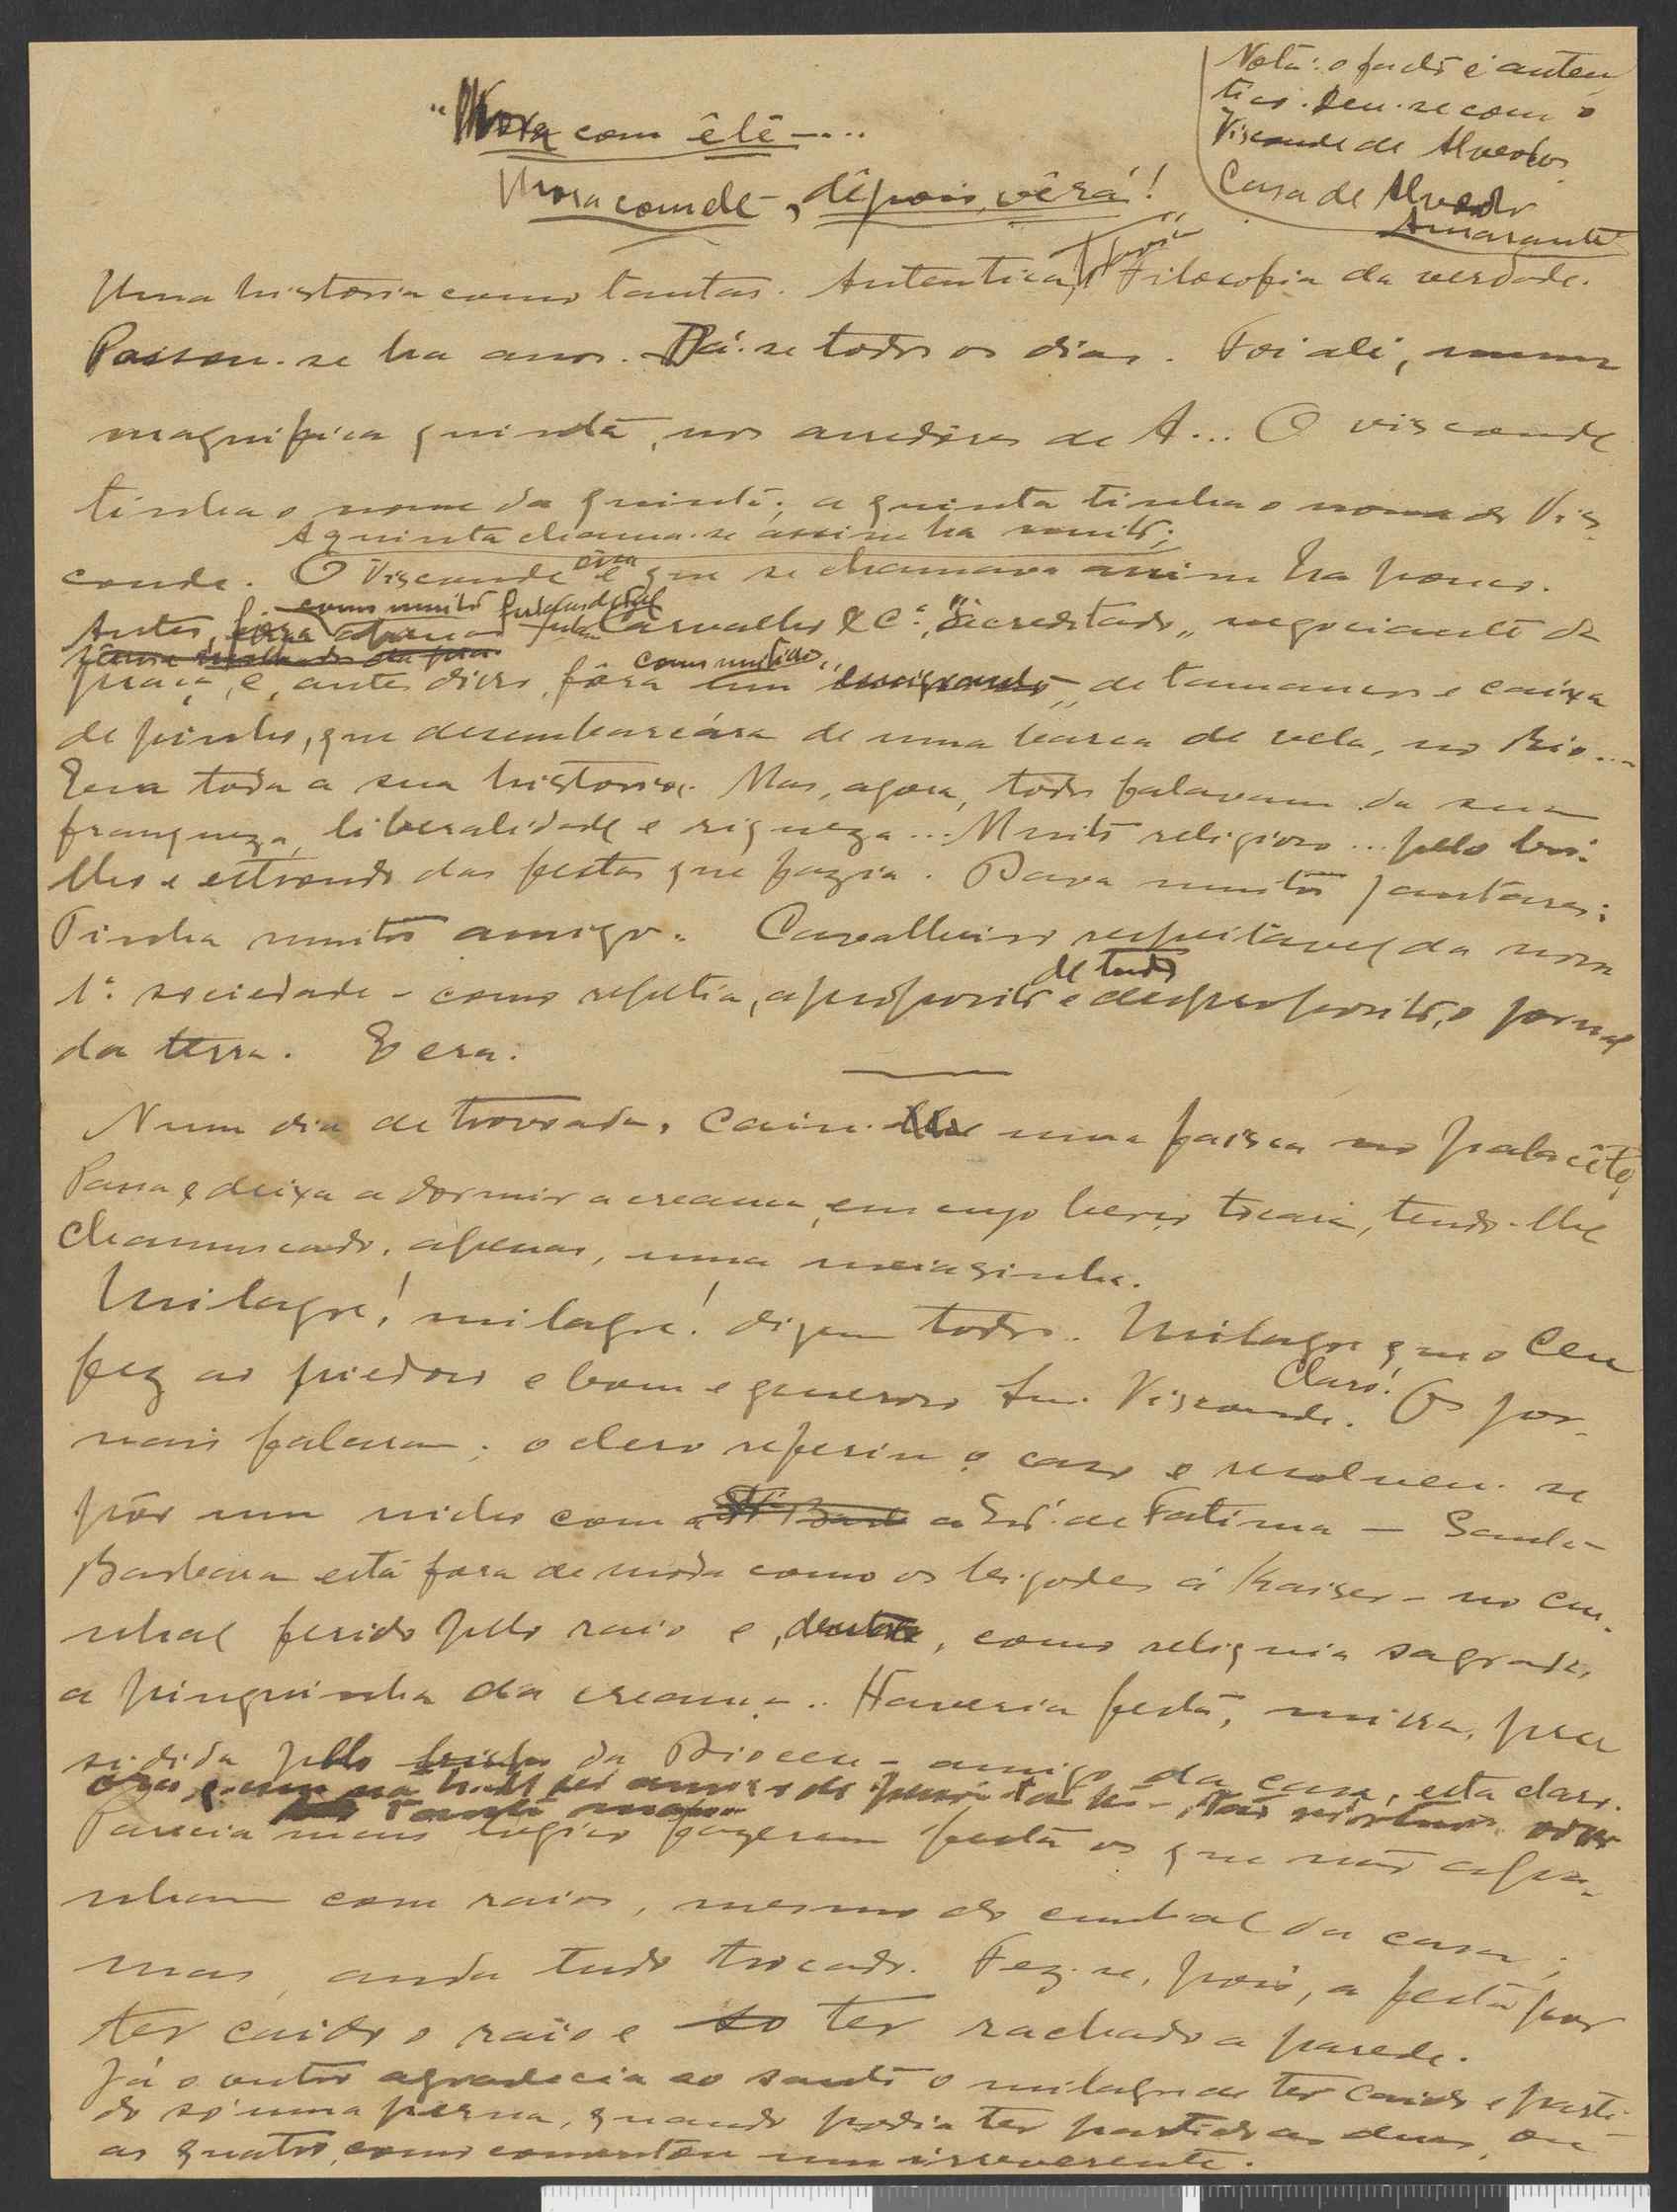 Nota: o facto é auten
tico. Deu-se com o
Visconde de Alvedos.
Casa de
Amarante
"Mora com êlê—...
Mora com êle, dêpois vêrá!
Uma historia como tantas. Autentica, Filosofia da verdade.
Passou-se ha anos. Dá-se todos os dias. Foi ali, numa
magnifica quinta, nos arredores de A... O visconde
tinha o nome da quinta; a quinta tinha o nome do Vis-
A quinta chama-se assim ha muito;
conde. O Visconde é que se chamava assim ha pouco.
como muito
Antes, fôra apenas Carvalho & Cª, "acreditado" negociante da
praça, e, antes disso, fôra um de tamancos e caixa
de pinho, que desembarcára de uma barca de vela, no Rio...
Era toda a sua historia. Mas, agora, todos falavam da sua
franqueza, liberalidade e riqueza... Muito religioso... pelo bri-
lho e estrondo das festas que fazia. Dava muitos jantares;
Tinha muitos amigos. Cavalheiro respeitavel da nossa
de tudo
1ª sociedade - como repetia, a proposito e desproposito, o jornal
da terra. E era.
Num dia de trovoada, caiu uma faisca no palacête,
Passa e deixa a dormir a creança, em cujo berço tocara, tendo-lhe
chamuscado, apenas, uma meiasinha.
Milagre! milagre! dizem todos. Milagre que o Ceu
Claro!
fez ao piedoso e bom e generoso Snr. Visconde. Os jor-
nais falaram; o clero referiu o caso e resolveu-se
pôr um nicho com a Srª de Fatima — Santa
Barbara está fora de moda como os bigodes á Kaiser - no cu-
nhal ferido pelo raio e, dentro, como reliquia sagrada,
a pinguinha da creança.. Haveria festa, missa, pre
sidida pelo bispo da Diocese - amigo da casa, está claro.
Parecia mais logico fazerem festa os que não apa-
nham com raios, mesmo no cunhal da casa;
mas, anda tudo trocado. Fez-se, pois, a festa por
ter caido o raio e só ter rachado a parede.
Já o outro agradecia ao santo o milagre de ter caido e parti-
do só uma perna, quando podia ter partido as duas, ou
as quatro, como comentou um irreverente.